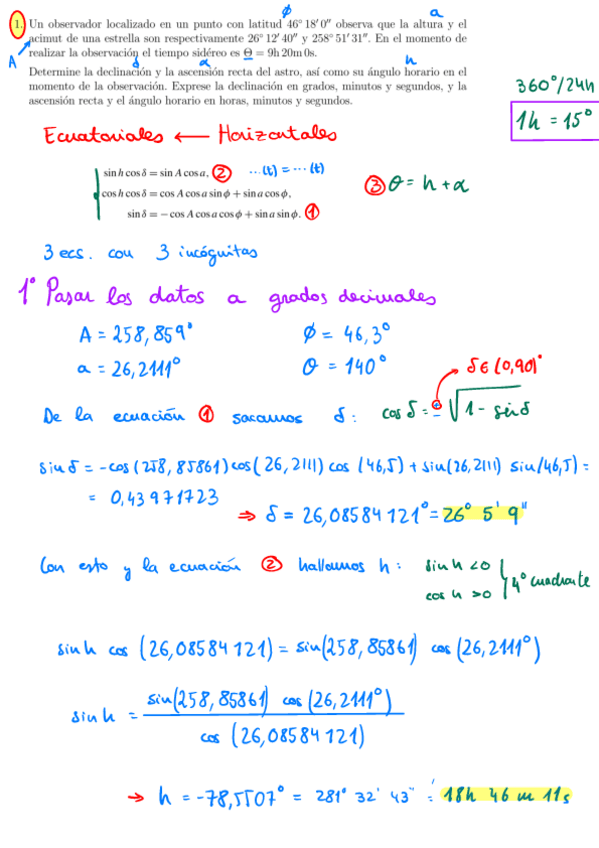 1. Un observador localizado en un punto con latitud 46° 18′ 0″ observa que la altura y el
ϕ
a
acimut de una estrella son respectivamente 26° 12′ 40″ y 258° 51′ 31″. En el momento de
A
realizar la observación el tiempo sidéreo es Θ = 9h 20m 0s.
Determine la declinación y la ascensión recta del astro, así como su ángulo horario en el
δ
α
h
momento de la observación. Exprese la declinación en grados, minutos y segundos, y la
ascensión recta y el ángulo horario en horas, minutos y segundos.
360°/24h
1h = 15°
Ecuatoriales ← Horizontales
sin h cos δ = sin A cos a, ② ...(t) = ...(t)
cos h cos δ = cos A cos a sin ϕ + sin a cos ϕ,
③ θ = h + α
sin δ = − cos A cos a cos ϕ + sin a sin ϕ. ①
3 ecs. con 3 incógnitas
1° Pasar los datos a grados decimales
A = 258,859° ϕ = 46,3°
a = 26,2111° θ = 140°
δ ∈ (0,90)°
De la ecuación ① sacamos δ: cos δ = ± √1 - sin²δ
sin δ = -cos(258,85861) cos(26,2111) cos (46,5) + sin(26,2111) sin(46,5) =
= 0,43971723
⇒ δ = 26,08584121° = 26° 5' 9"
Con esto y la ecuación ② hallamos h: sin h < 0
cos h > 0
4° cuadrante
sin h cos (26,08584121) = sin(258,85861) cos(26,2111°)
sin h = sin(258,85861) cos(26,2111°)
cos (26,08584121)
→ h = -78,5507° = 281° 32' 43" = 18h 46m 11s